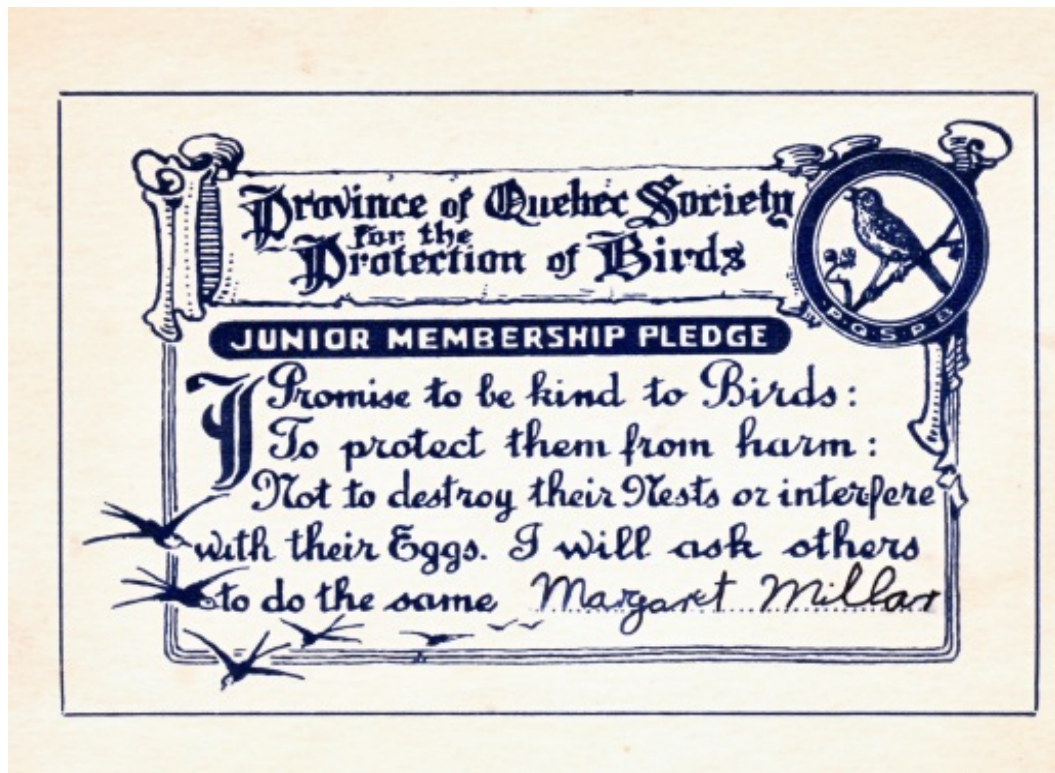 Province of Quebec Society
for the
Protection of Birds
P.Q.S.P.B
JUNIOR MEMBERSHIP PLEDGE
I Promise to be kind to Birds:
To protect them from harm:
Not to destroy their Nests or interfere
with their Eggs. I will ask others
to do the same Margaret Millar